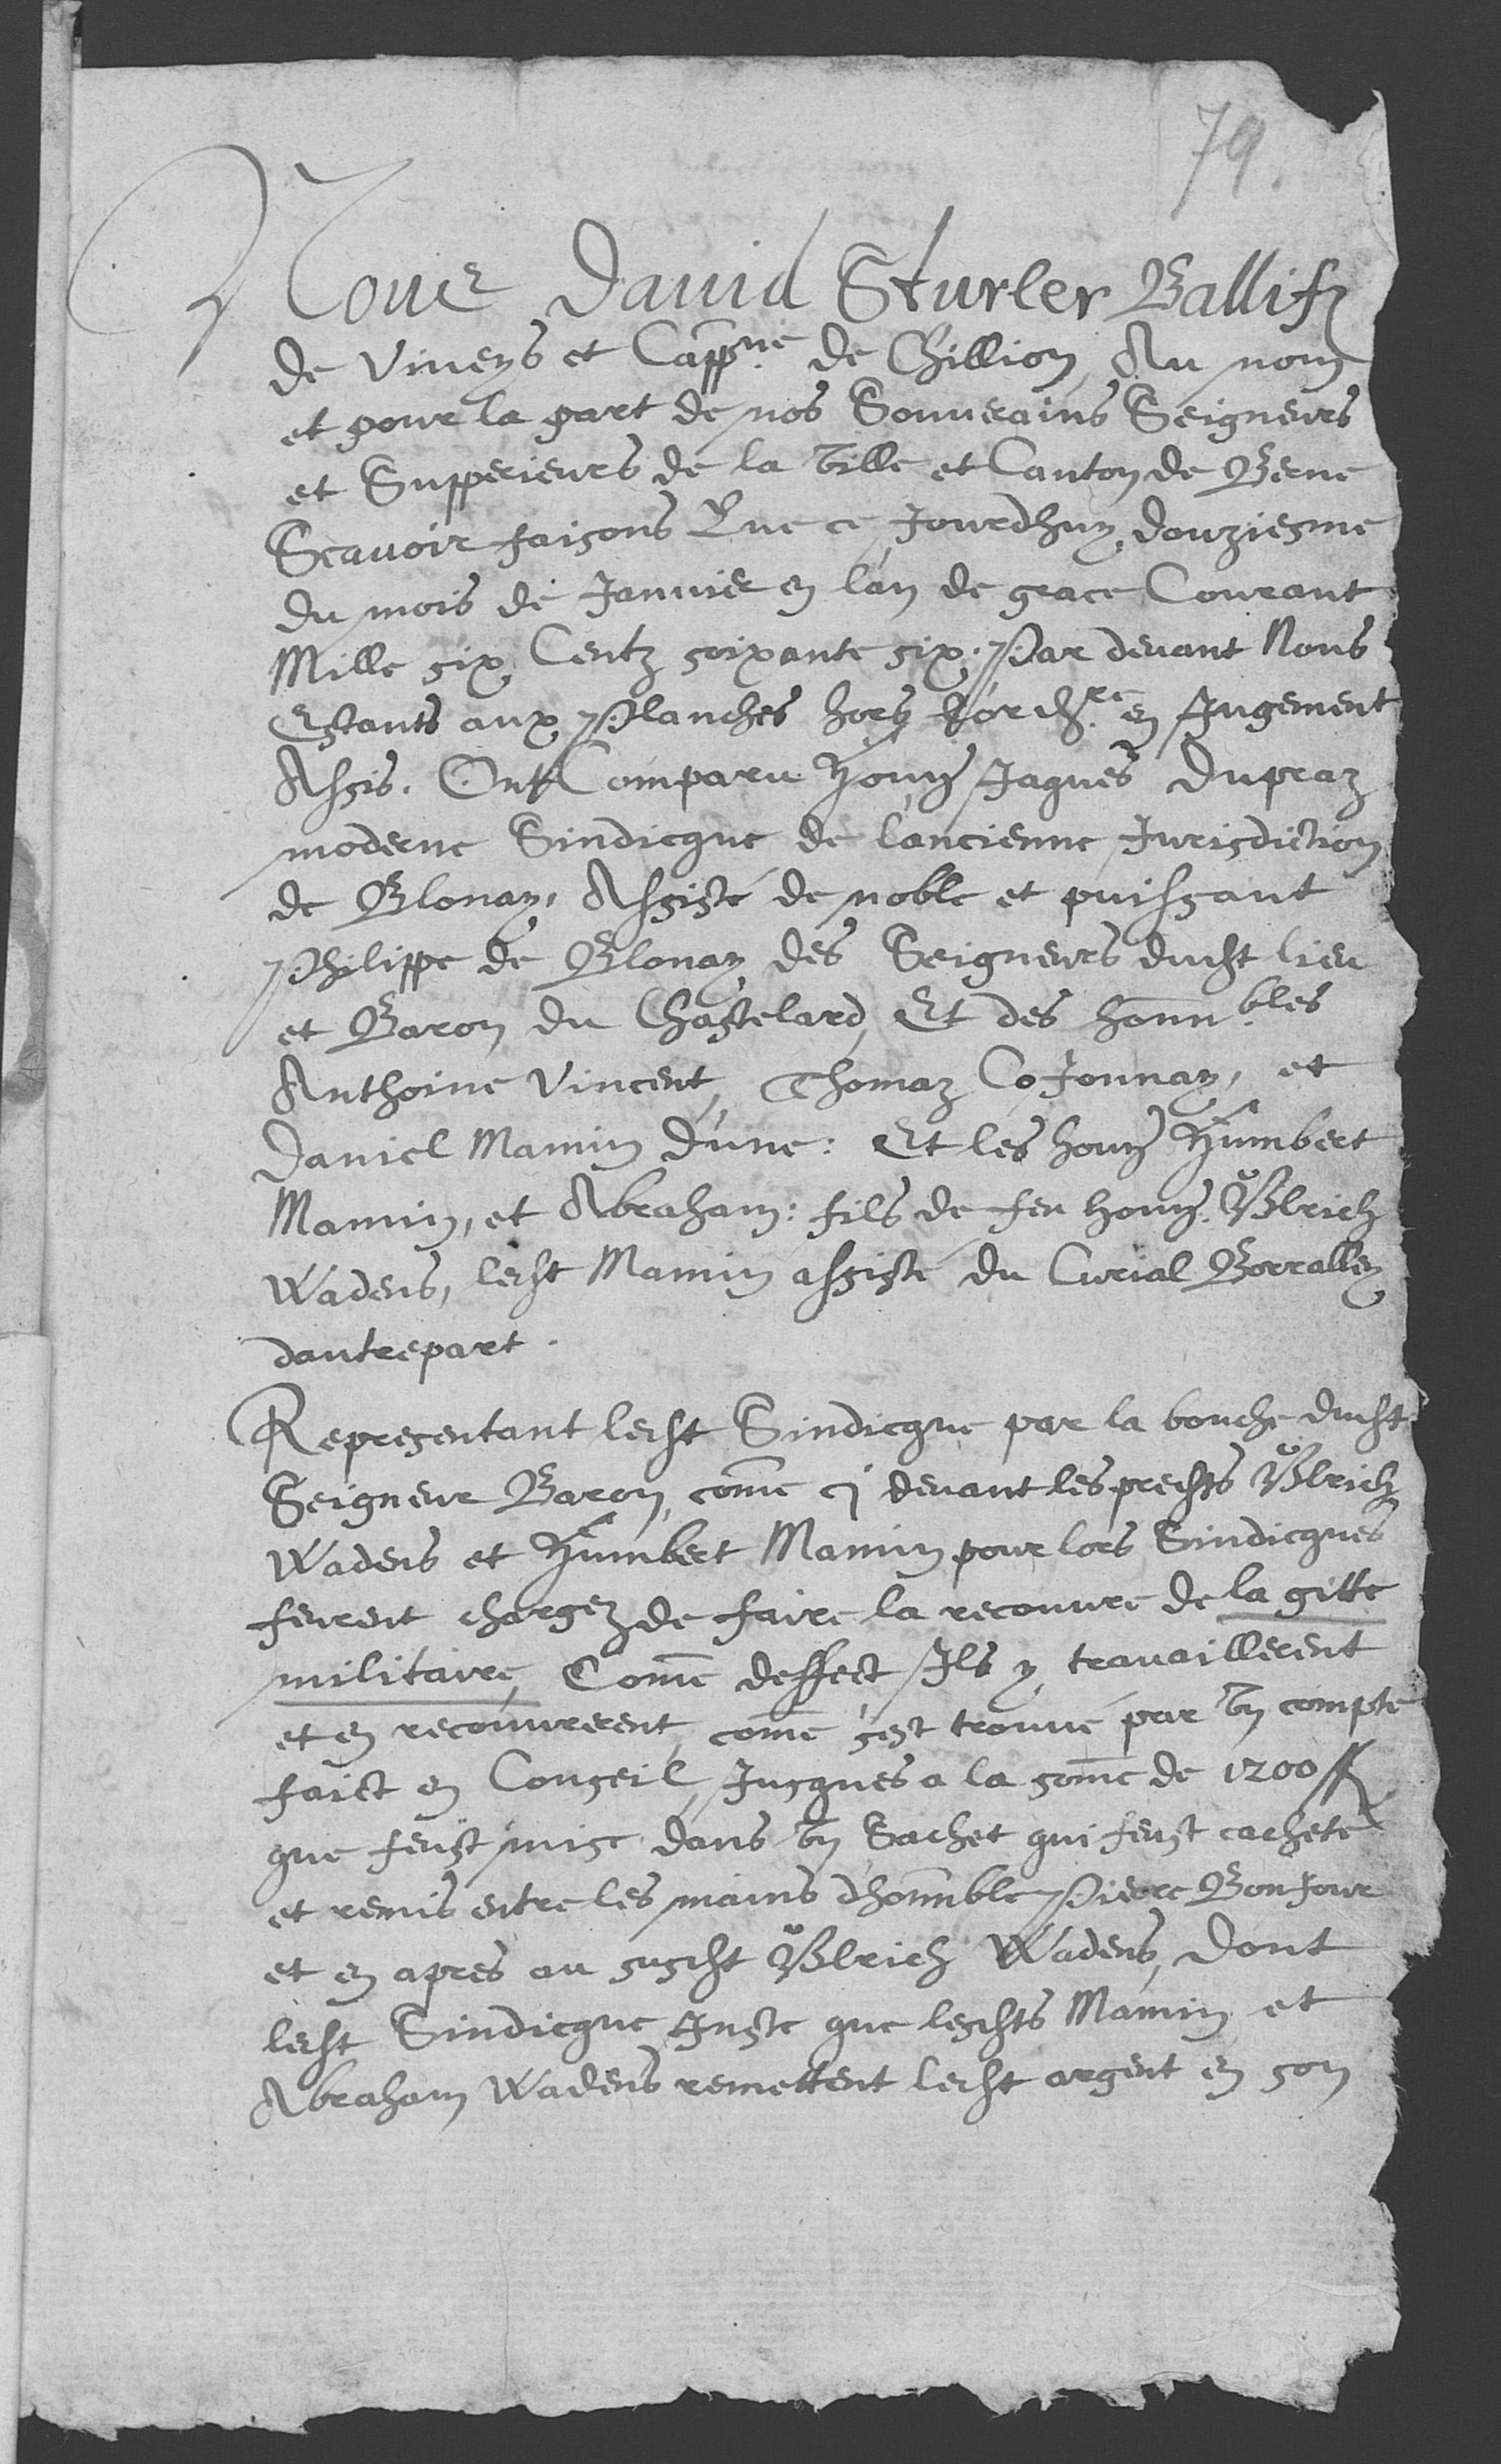 79.
Nous David Sturler Ballifz
de Viveys et Cappne de Chillion, Au nom
et pour la part de nos Souverains Seigneurs
et Supperieurs de la Ville et Canton de Berne
Scavoir faisons Que ce Jourdhuy douziesme
du mois de Janvier en lan de grace Courant
Mille six Centz soixante six. Par devant Nous
Estants aux Planches hors en Jugement
Assis. Ont Comparu Hon. Jaques Dupraz
moderne Sindicque de lancienne Jurisdiction
de Blonay, Assisté de noble et puissant
Philippe de Blonay des Seigneurs dudt lieu
et Baron du Chastelard, Et des honn.bles
Anthoine Vincent, Thomaz CoJonnay, et
Daniel Mamin d'une: Et les hon. Humbert
Mamin, et Abraham: fils de feu hon. Vlrich
Wadens, ledt Mamin assisté du Curial Borralley
dautrepart.
Representant ledt Sindicque par la bouche dudt
Seigneur Baron, come cj devant les predts Vlrich
Wadens et Humbert Mamin pour lors Sindicques
feurent chargez de faire la recouvre de la gitte
militaire, Come deffect Jls y travaillerent
et en recouvrerent, come sest trouvé par vn compte
faict en Conseil, Jusques a la some de 1200 ff
que feust mise dans vn Sachet qui feust cacheté
et remis entre les mains dhonnble Pierre BonJour
et en apres au susdt Vlrich Wadens, Dont
ledt Sindicque Juste que lesdts Mamin et
Abraham Wadens remettent ledt argent en son